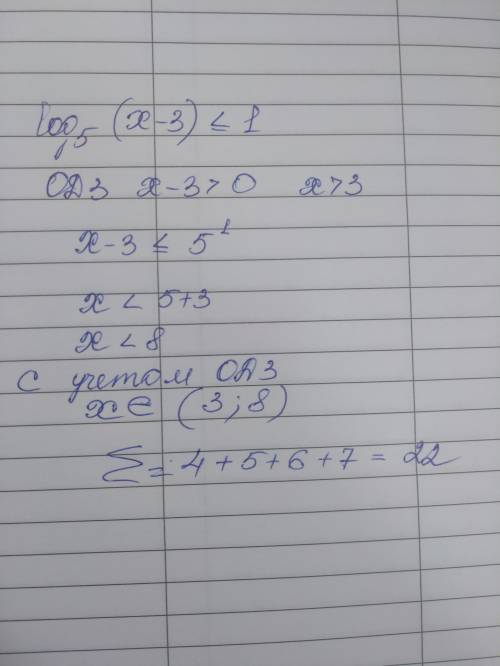 log₅ (x-3) ≤ 1
ОДЗ x-3>0 x>3
x-3 ≤ 5¹
x < 5+3
x < 8
с учетом ОДЗ
x∈ (3;8)
Σ = 4+5+6+7 = 22